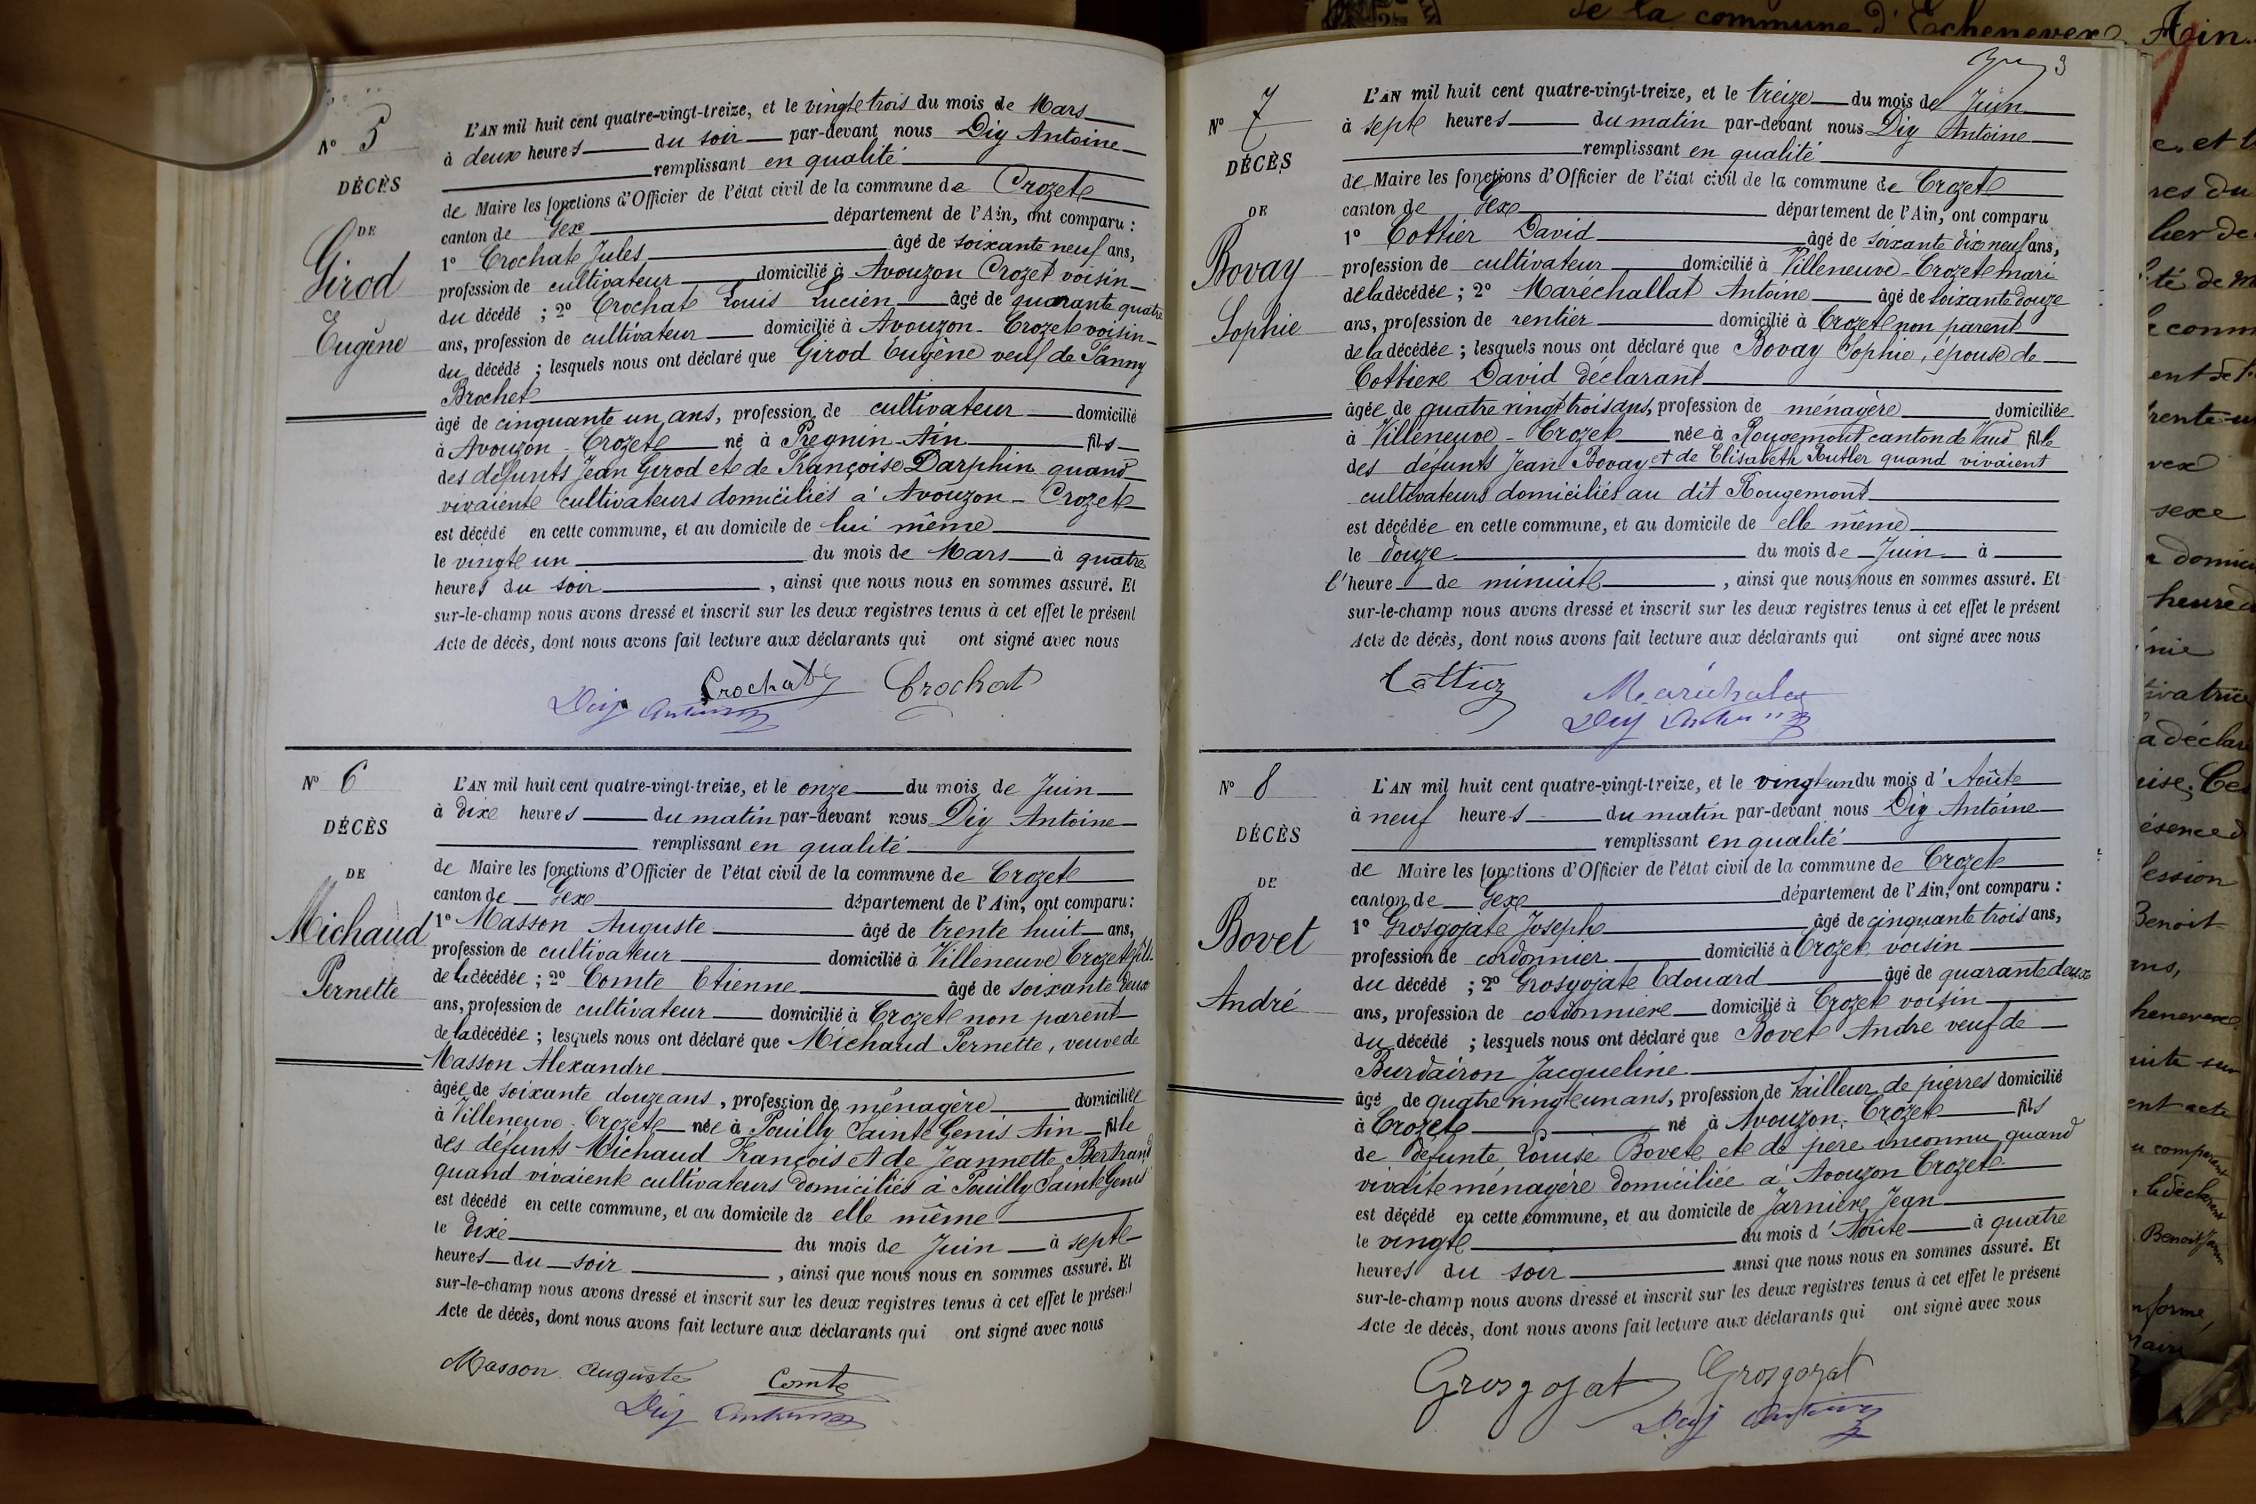 de la commune d'Echenevex Ain.
3
N° 5
DÉCÈS
DE
Girod
Eugène
L'AN mil huit cent quatre-vingt-treize, et le vingt trois du mois de Mars
à deux heures du soir par-devant nous Diy Antoine
remplissant en qualité
de Maire les fonctions d'Officier de l'état civil de la commune de Crozet
canton de Gex département de l'Ain, ont comparu :
1° Crochat Jules âgé de soixante neuf ans,
profession de cultivateur domicilié à Avouzon Crozet voisin
du décédé ; 2° Crochat Louis Lucien âgé de quarante quatre
ans, profession de cultivateur domicilié à Avouzon - Crozet voisin
du décédé ; lesquels nous ont déclaré que Girod Eugène veuf de Fanny
Brochet
âgé de cinquante un ans, profession de cultivateur domicilié
à Avouzon - Crozet né à Pregnin - Ain fils
des défunts Jean Girod et de Françoise Darphin quand
vivaient cultivateurs domiciliés à Avouzon - Crozet
est décédé en cette commune, et au domicile de lui même
le vingt un du mois de Mars à quatre
heures du soir , ainsi que nous nous en sommes assuré. Et
sur-le-champ nous avons dressé et inscrit sur les deux registres tenus à cet effet le présent
Acte de décès, dont nous avons fait lecture aux déclarants qui ont signé avec nous
Crochat Crochat
Diy Antoine
N° 6
DÉCÈS
DE
Michaud
Pernette
L'AN mil huit cent quatre-vingt-treize, et le onze du mois de Juin
à dix heures du matin par-devant nous Diy Antoine
remplissant en qualité
de Maire les fonctions d'Officier de l'état civil de la commune de Crozet
canton de Gex département de l'Ain, ont comparu :
1° Masson Auguste âgé de trente huit ans,
profession de cultivateur domicilié à Villeneuve Crozet fils
de la décédée ; 2° Comte Etienne âgé de soixante deux
ans, profession de cultivateur domicilié à Crozet non parent
de la décédée ; lesquels nous ont déclaré que Michaud Pernette, veuve de
Masson Alexandre
âgée de soixante douze ans, profession de ménagère domiciliée
à Villeneuve - Crozet née à Pouilly Saint Genis Ain fille
des défunts Michaud François et de Jeannette Bertrand
quand vivaient cultivateurs domiciliés à Pouilly Saint Genis
est décédé en cette commune, et au domicile de elle même
le dix du mois de Juin à sept
heures du soir , ainsi que nous nous en sommes assuré. Et
sur-le-champ nous avons dressé et inscrit sur les deux registres tenus à cet effet le présent
Acte de décès, dont nous avons fait lecture aux déclarants qui ont signé avec nous
Masson Auguste Comte
Diy Antoine
N° 7
DÉCÈS
DE
Bovay
Sophie
L'AN mil huit cent quatre-vingt-treize, et le treize du mois de Juin
à sept heures du matin par-devant nous Diy Antoine
remplissant en qualité
de Maire les fonctions d'Officier de l'état civil de la commune de Crozet
canton de Gex département de l'Ain, ont comparu
1° Cottier David âgé de soixante dix neuf ans,
profession de cultivateur domicilié à Villeneuve - Crozet mari
de la décédée ; 2° Maréchallat Antoine âgé de soixante douze
ans, profession de rentier domicilié à Crozet non parent
de la décédée ; lesquels nous ont déclaré que Bovay Sophie, épouse de
Cottier David déclarant
âgée de quatre vingt trois ans, profession de ménagère domiciliée
à Villeneuve - Crozet née à Rougemont canton de Vaud fille
des défunts Jean Bovay et de Elisabeth Rutler quand vivaient
cultivateurs domiciliés au dit Rougemont
est décédée en cette commune, et au domicile de elle même
le douze du mois de Juin à
l'heure de minuit , ainsi que nous nous en sommes assuré. Et
sur-le-champ nous avons dressé et inscrit sur les deux registres tenus à cet effet le présent
Acte de décès, dont nous avons fait lecture aux déclarants qui ont signé avec nous
Cottier Maréchalat
Diy Antoine
N° 8
DÉCÈS
DE
Bovet
André
L'AN mil huit cent quatre-vingt-treize, et le vingt un du mois d'Août
à neuf heures du matin par-devant nous Diy Antoine
remplissant en qualité
de Maire les fonctions d'Officier de l'état civil de la commune de Crozet
canton de Gex département de l'Ain, ont comparu :
1° Grosgojat Joseph âgé de cinquante trois ans,
profession de cordonnier domicilié à Crozet voisin
du décédé ; 2° Grosgojat Edouard âgé de quarante deux
ans, profession de cordonnier domicilié à Crozet voisin
du décédé ; lesquels nous ont déclaré que Bovet André veuf de
Burdairon Jacqueline
âgé de quatre vingt un ans, profession de tailleur de pierres domicilié
à Crozet né à Avouzon - Crozet fils
de défunte Louise Bovet et de père inconnu quand
vivait ménagère domiciliée à Avouzon Crozet
est décédé en cette commune, et au domicile de Jarnier Jean
le vingt du mois d'Août à quatre
heures du soir ainsi que nous nous en sommes assuré. Et
sur-le-champ nous avons dressé et inscrit sur les deux registres tenus à cet effet le présent
Acte de décès, dont nous avons fait lecture aux déclarants qui ont signé avec nous
Grosgojat Grosgojat
Diy Antoine
res du
sexe
heure
Benoit